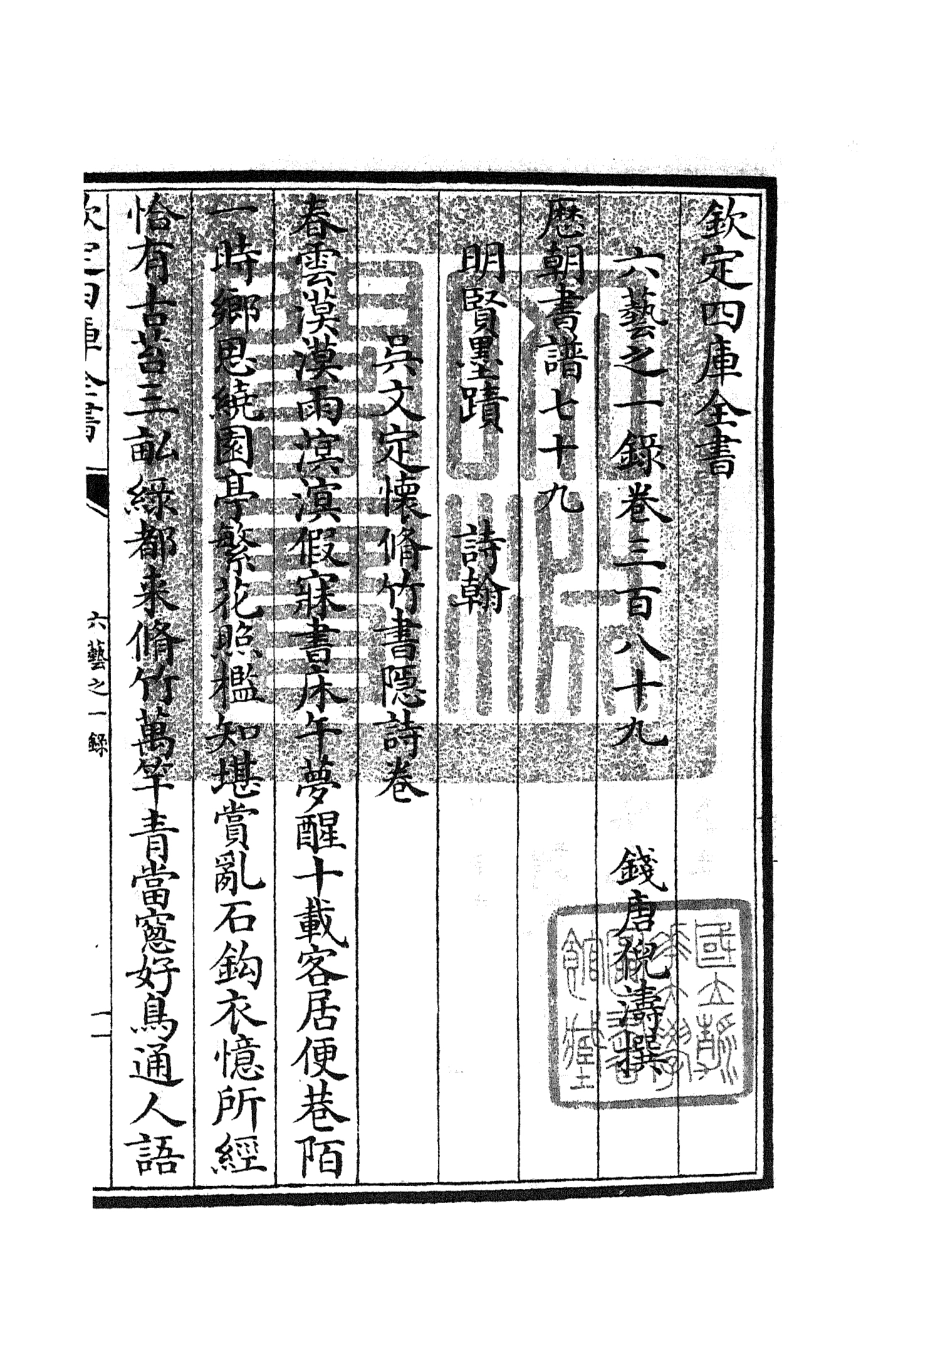 欽定四庫全書
六藝之一錄卷三百八十九　錢唐倪濤撰
歷朝書譜七十九
明賢墨蹟　詩翰
吳文定懷脩竹書隱詩卷
春雲漠漠雨溟溟假寐書床午夢醒十載客居便巷陌
一時鄉思繞園亭繁花照檻知堪賞亂石鈎衣憶所經
恰有古苔三畝綠都来脩竹萬竿青當窻好鳥通人語
欽定四庫全書
六藝之一錄
一